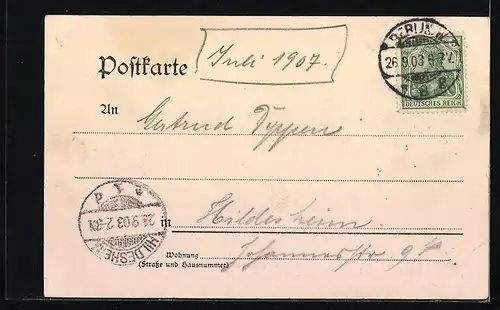 BERLIN, W
26.9.03
Juli 1907.
Postkarte
DEUTSCHES REICH
An
Gertrud
in Hildesheim
HILDESHEIM
26.9.03
Wohnung Johannesstr 9
(Straße und Hausnummer)